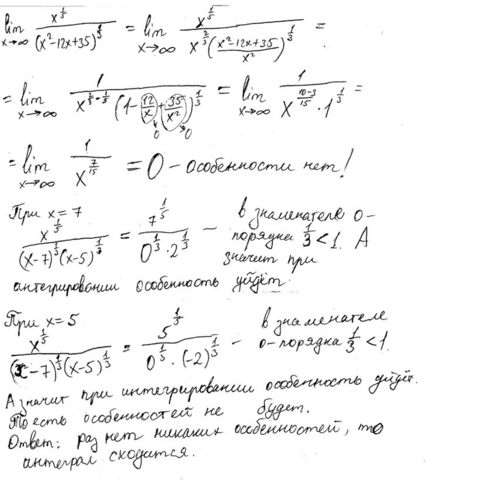 lim x→∞ x^{1/5} / (x²-12x+35)^{1/3} = lim x→∞ x^{1/5} / (x^{2/3} ((x²-12x+35)/x²)^{1/3}) =
= lim x→∞ 1 / (x^{2/3-1/5} (1-12/x+35/x²)^{1/3}) = lim x→∞ 1 / (x^{(10-3)/15} · 1^{1/3}) =
→0 →0
= lim x→∞ 1 / x^{7/15} = 0 - особенности нет!
При x=7
x^{1/5} / ((x-7)^{1/3}(x-5)^{1/3}) = 7^{1/5} / (0^{1/3} · 2^{1/3}) - в знаменателе 0-
порядка 1/3 < 1. А
значит при
интегрировании особенность уйдёт.
При x=5
x^{1/5} / ((x-7)^{1/3}(x-5)^{1/3}) = 5^{1/5} / (0^{1/3} · (-2)^{1/3}) - в знаменателе
0-порядка 1/3 < 1.
А значит при интегрировании особенность уйдёт.
То есть особенностей не будет.
Ответ: раз нет никаких особенностей, то
интеграл сходится.